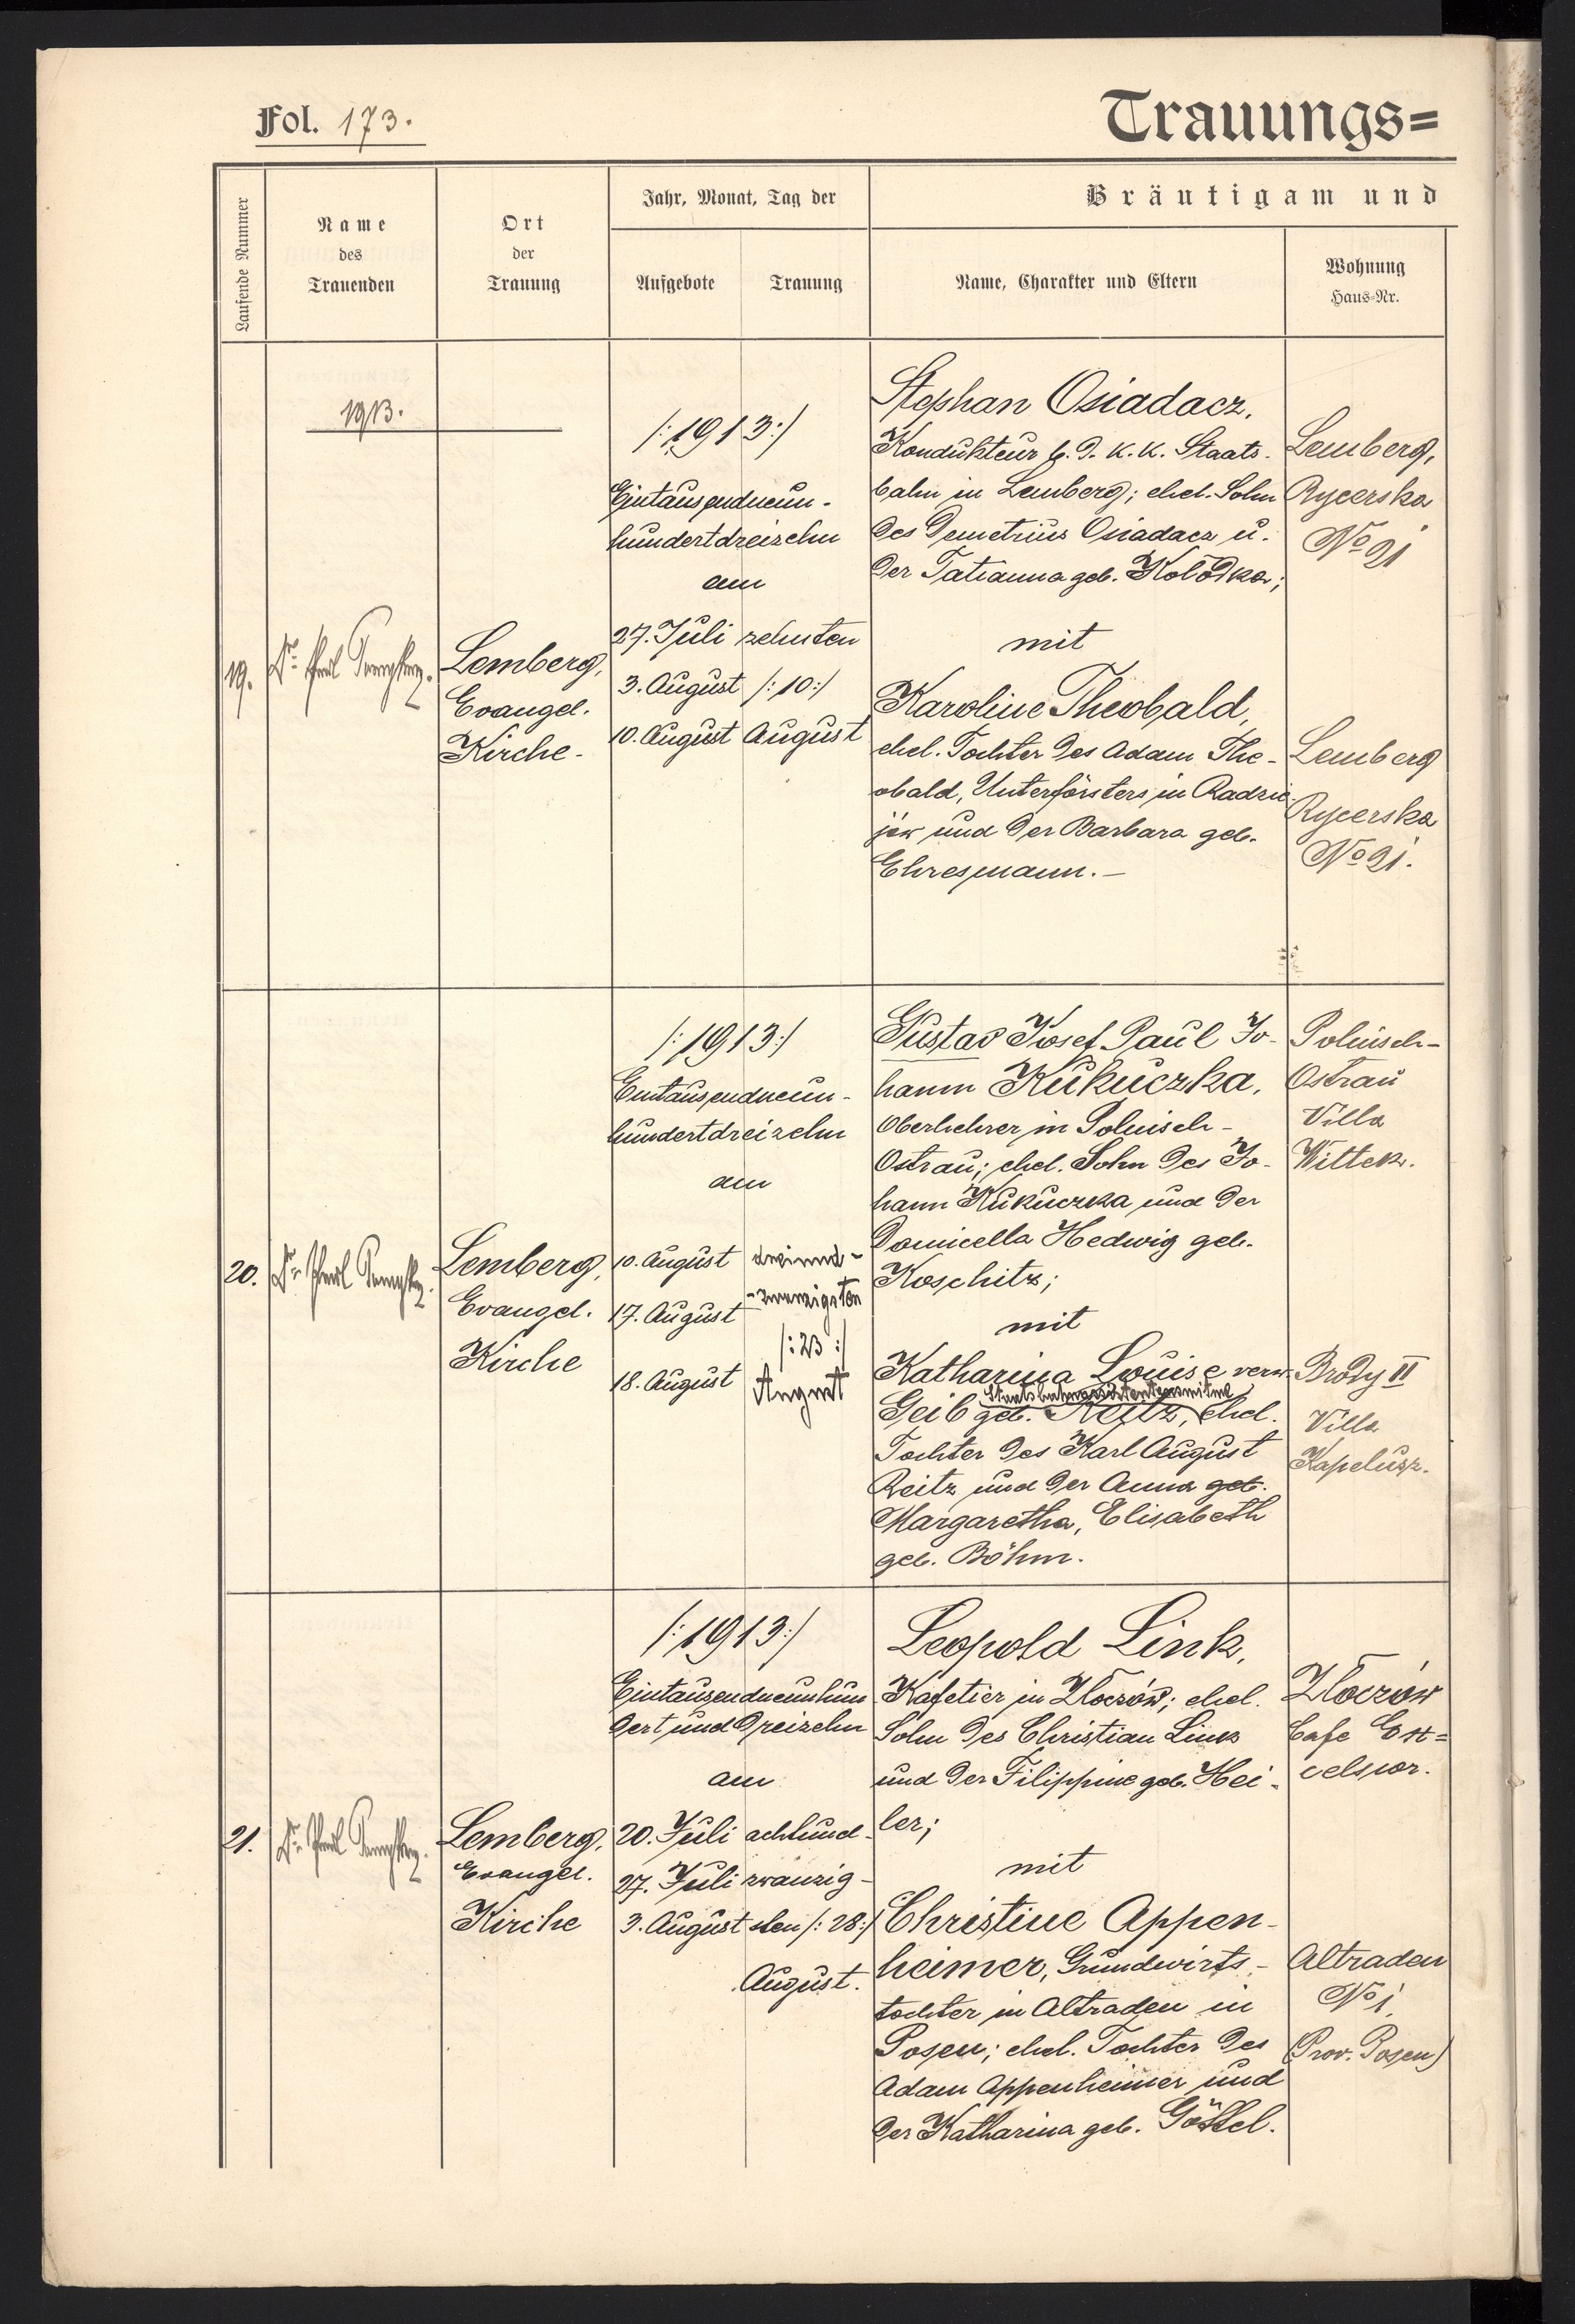 Fol. 173.
Trauungs=
Laufende Nummer
Name
des
Trauenden
Ort
der
Trauung
Jahr, Monat, Tag der
Aufgebote
Trauung
Bräutigam und
Name, Charakter und Eltern
Wohnung
Haus-Nr.
1913.
19.
Lemberg,
Evangel.
Kirche-
/:1913:/
Eintausendneun-
hundertdreizehn
am
27. Juli zehnten
3. August /:10:/
10. August August
Stephan Osiadacz,
Kondukteur b. d. k. k. Staats-
bahn in Lemberg; ehel. Sohn
des Demetrius Osiadacz u.
der Tatianna geb. Kołodka;
mit
Karoline Theobald,
ehel. Tochter des Adam The-
obald, Unterförsters in Radzie-
jów und der Barbara geb.
Ehresmann.-
Lemberg,
Rycerska
No 21
Lemberg
Rycerska
No 21.
20.
Lemberg,
Evangel.
Kirche
/:1913:/
Eintausendneun-
hundertdreizehn
am
10. August dreiund-
-zwanzigsten
17. August
/:23:/
18. August August
Gustav Josef Paul Jo-
hann Kukuczka,
Oberlehrer in Polnisch-
Ostrau; ehel. Sohn des Jo-
hann Kukuczka und der
Domicella Hedwig geb.
Koschitz;
mit
Katharina Louise verw.
Staatsbahnassistentenswitwe
Geib geb. Reitz, ehel.
Tochter des Karl August
Reitz und der Anna geb.
Margaretha, Elisabeth
geb. Böhm.
Polnisch-
Ostrau
Villa
Wittek.
Brody II
Villa
Kapelusz.
21.
Lemberg,
Evangel.
Kirche
/:1913:/
Eintausendneunhun
dert und dreizehn
am
20. Juli achtund-
27. Juli zwanzig-
3. August sten /:28:/
August.
Leopold Link,
Kafetier in Złoczów; ehel.
Sohn des Christian Link
und der Filippine geb. Hei-
ler;
mit
Christine Appen-
heimer, Grundwirts-
tochter in Altraden in
Posen; ehel. Tochter des
Adam Appenheimer und
der Katharina geb. Göttel.
Złoczów
Cafe
Altraden
No 1
(Prov. Posen)